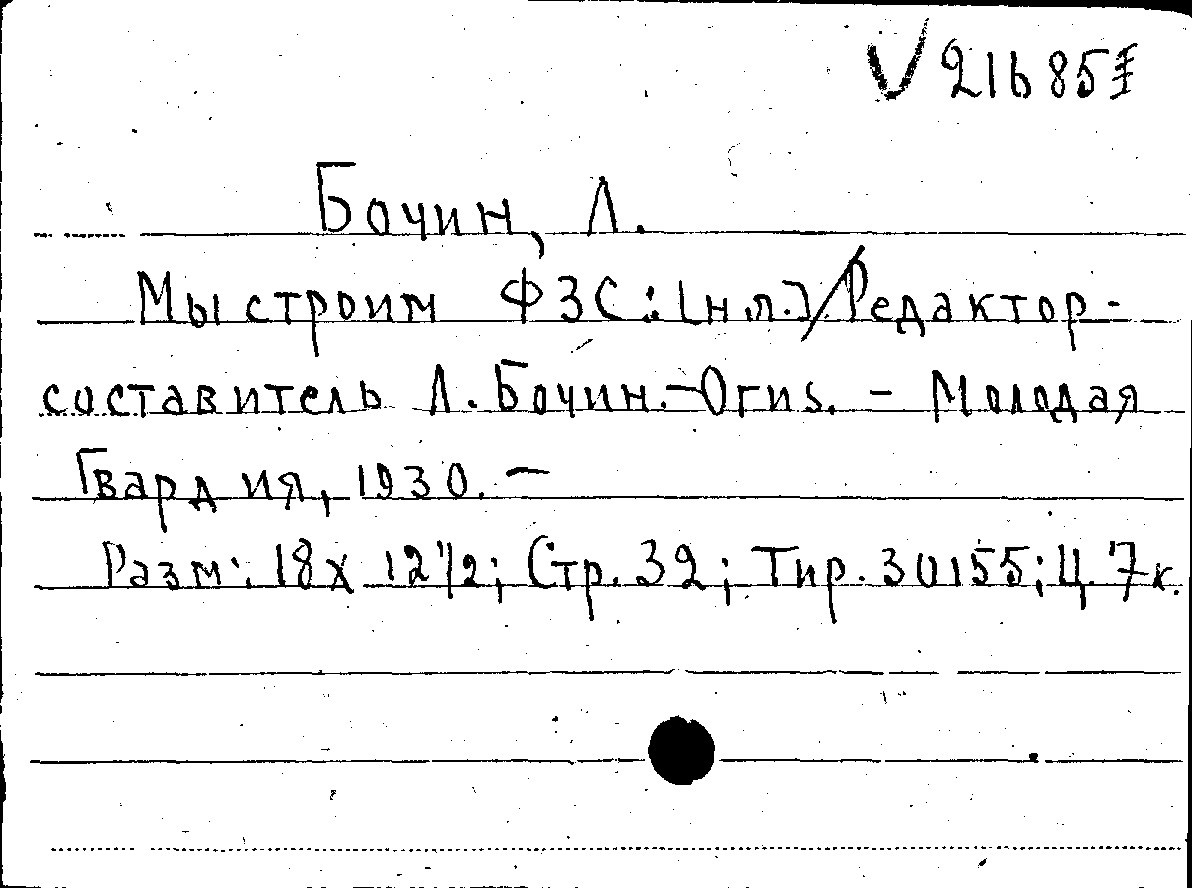 V 21685
Бочин, Л.
Мы строим ФЗС: [н.л.] / Редактор-
составитель Л. Бочин. – Огиз. – Молодая
Гвардия, 1930. –
Разм: 18 х 12 1/2; Стр. 32; Тир. 30155; Ц. 7 к.